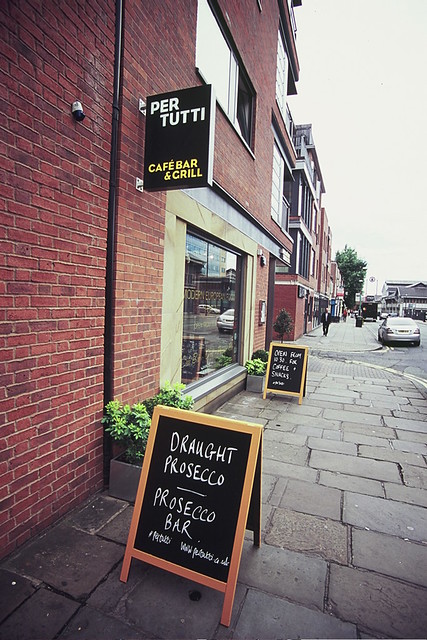 PER
TUTTI
CAFÉ BAR
& GRILL
DRAUGHT
PROSECCO
PROSECCO
BAR
#pertutti www.pertutti.co.uk
OPEN FROM
10.30 FOR
COFFEE +
SNACKS